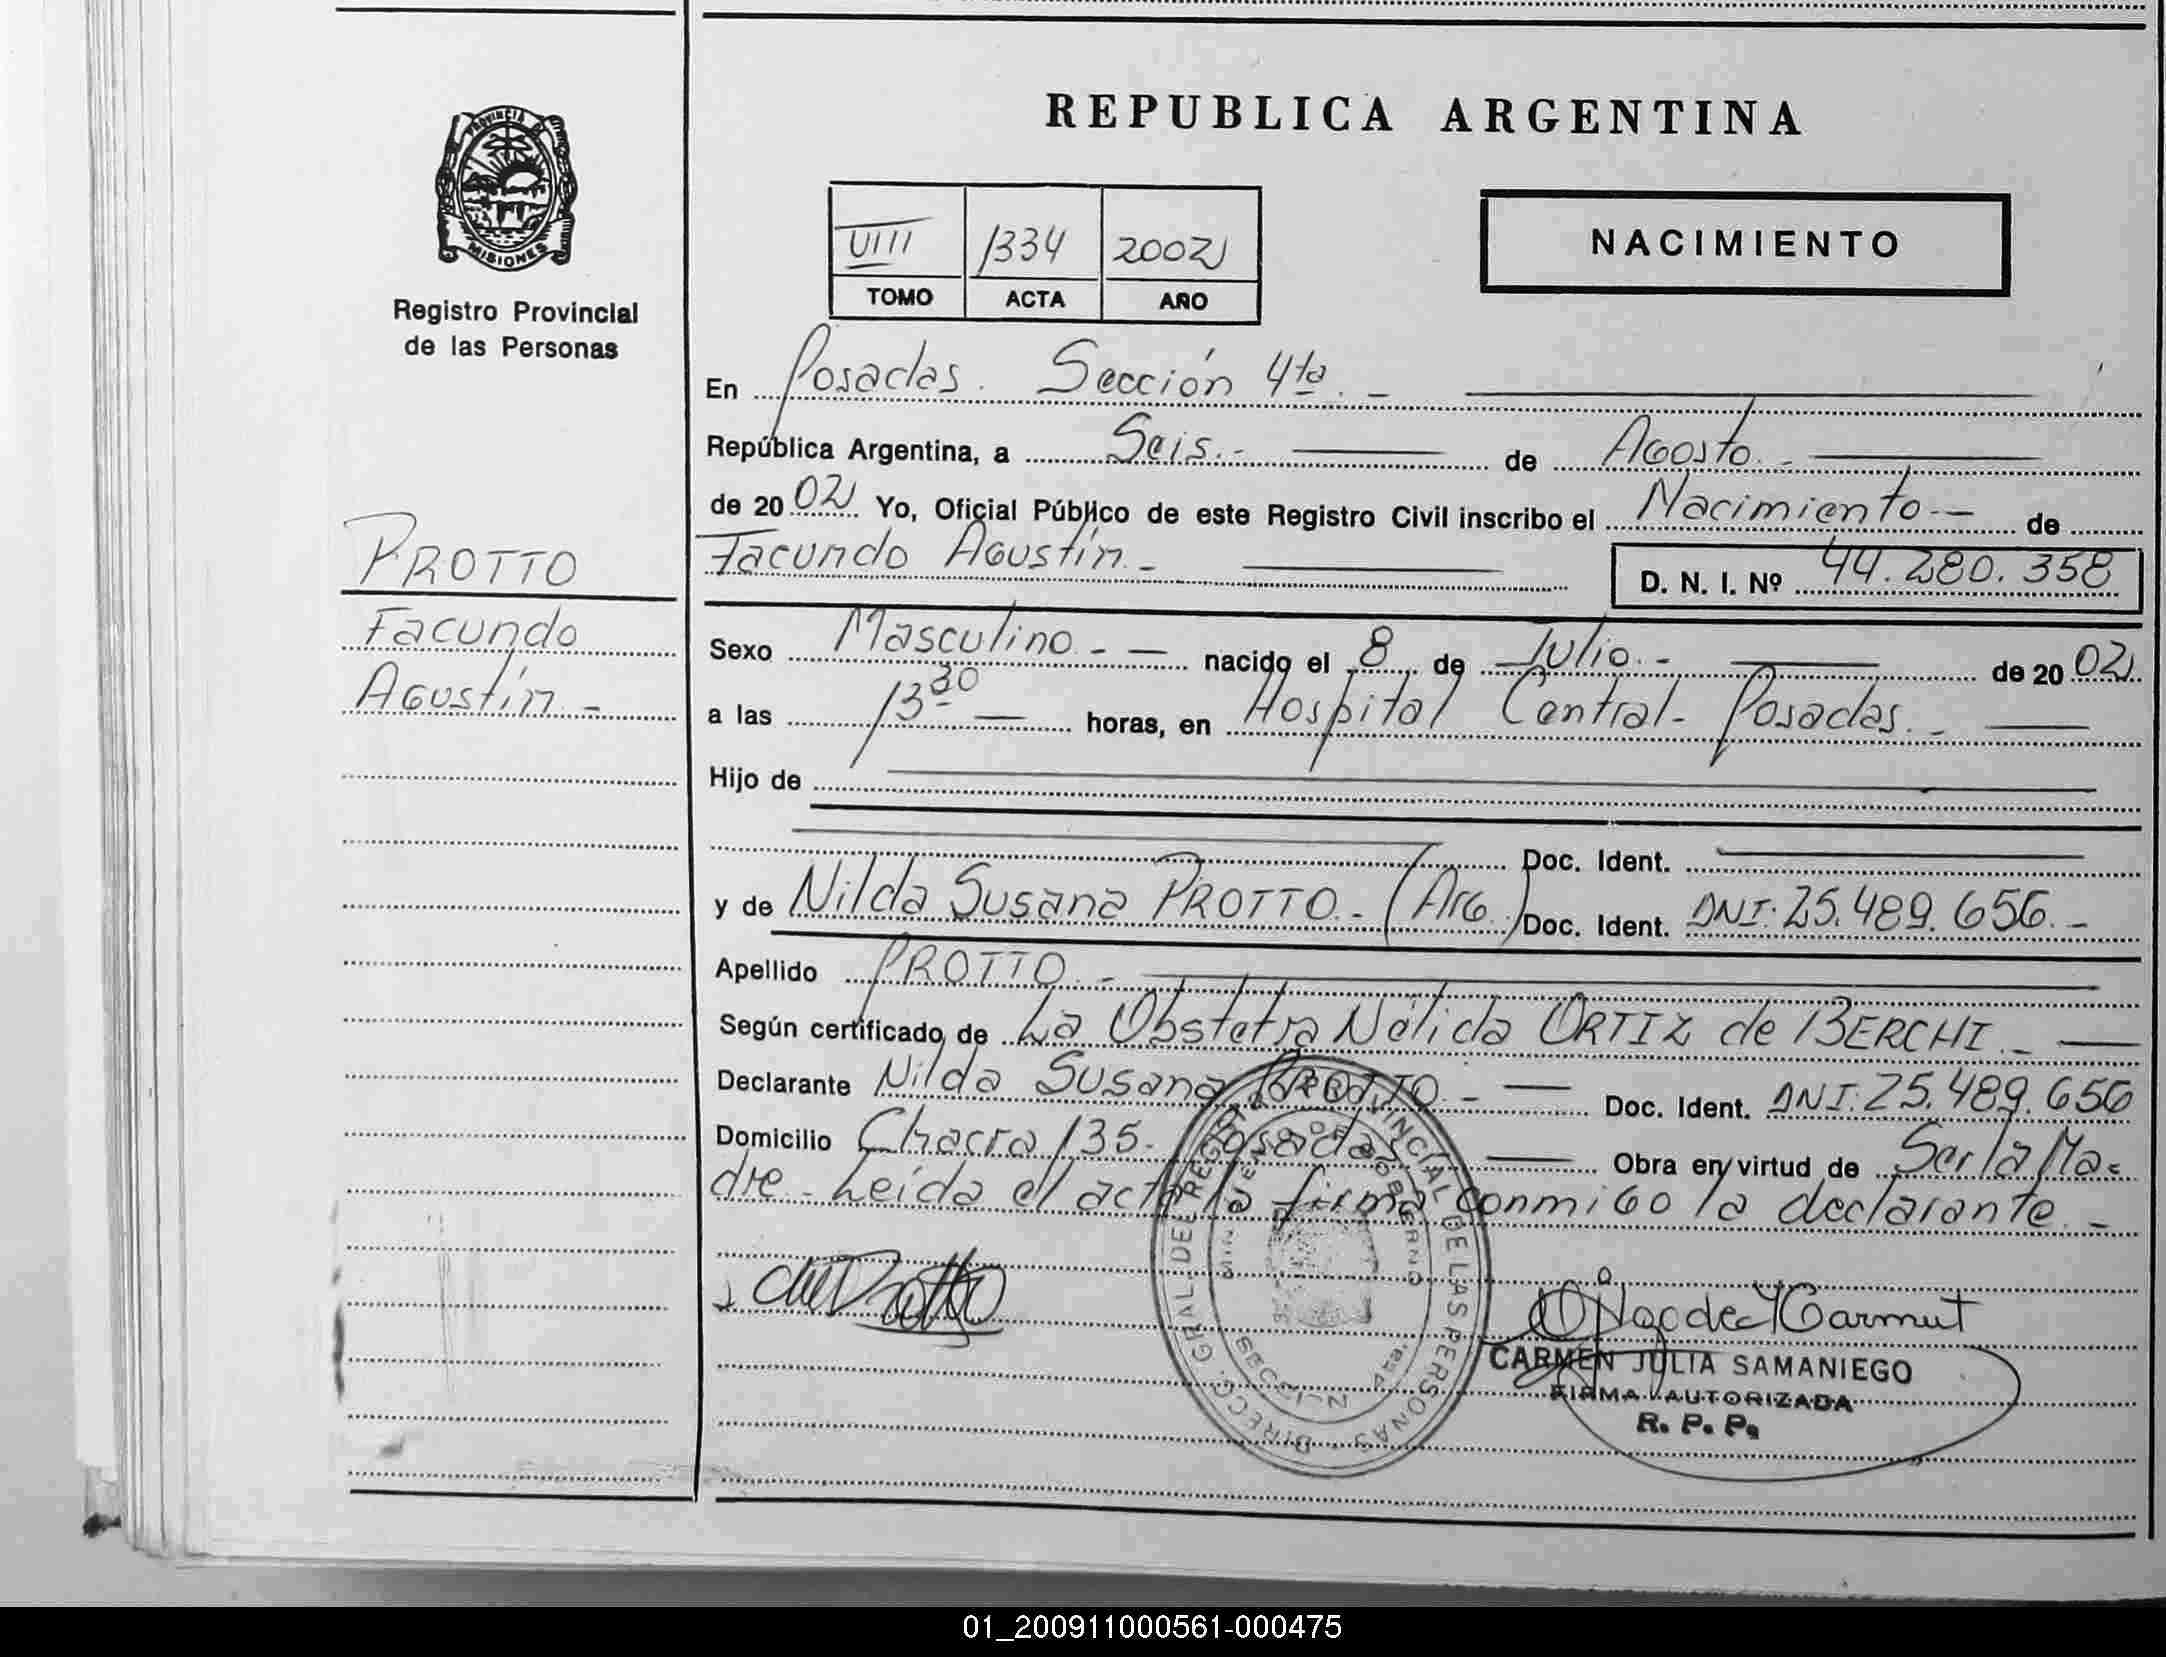 PROVINCIA DE
MISIONES
Registro Provincial
de las Personas
PROTTO
Facundo
Agustín -
REPUBLICA ARGENTINA
VIII 1334 2002
TOMO ACTA AÑO
NACIMIENTO
En Posadas. Sección 4ta. -
República Argentina, a Seis. - de Agosto. -
de 2002 Yo, Oficial Público de este Registro Civil inscribo el Nacimiento - de
Facundo Agustín. - D. N. I. Nº 44.280.358
Sexo Masculino. - nacido el 8 de Julio. - de 2002
a las 13 30 horas, en Hospital Central - Posadas. -
Hijo de
Doc. Ident.
y de Nilda Susana PROTTO. - (Arg.) Doc. Ident. DNI: 25.489.656. -
Apellido PROTTO. -
Según certificado de La Obstetra Nélida ORTIZ de BERCHI. -
Declarante Nilda Susana PROTTO. - Doc. Ident. DNI: 25.489.656
Domicilio Chacra 135. Posadas Obra en virtud de Ser la Ma-
dre - Leída el acta la firma conmigo la declarante. -
DIRECC. GRAL. DEL REGISTRO PROVINCIAL DE LAS PERSONAS
MINISTERIO DE GOBIERNO
SECCION 4ta.
CARMEN JULIA SAMANIEGO
FIRMA AUTORIZADA
R. P. P.
01_200911000561-000475